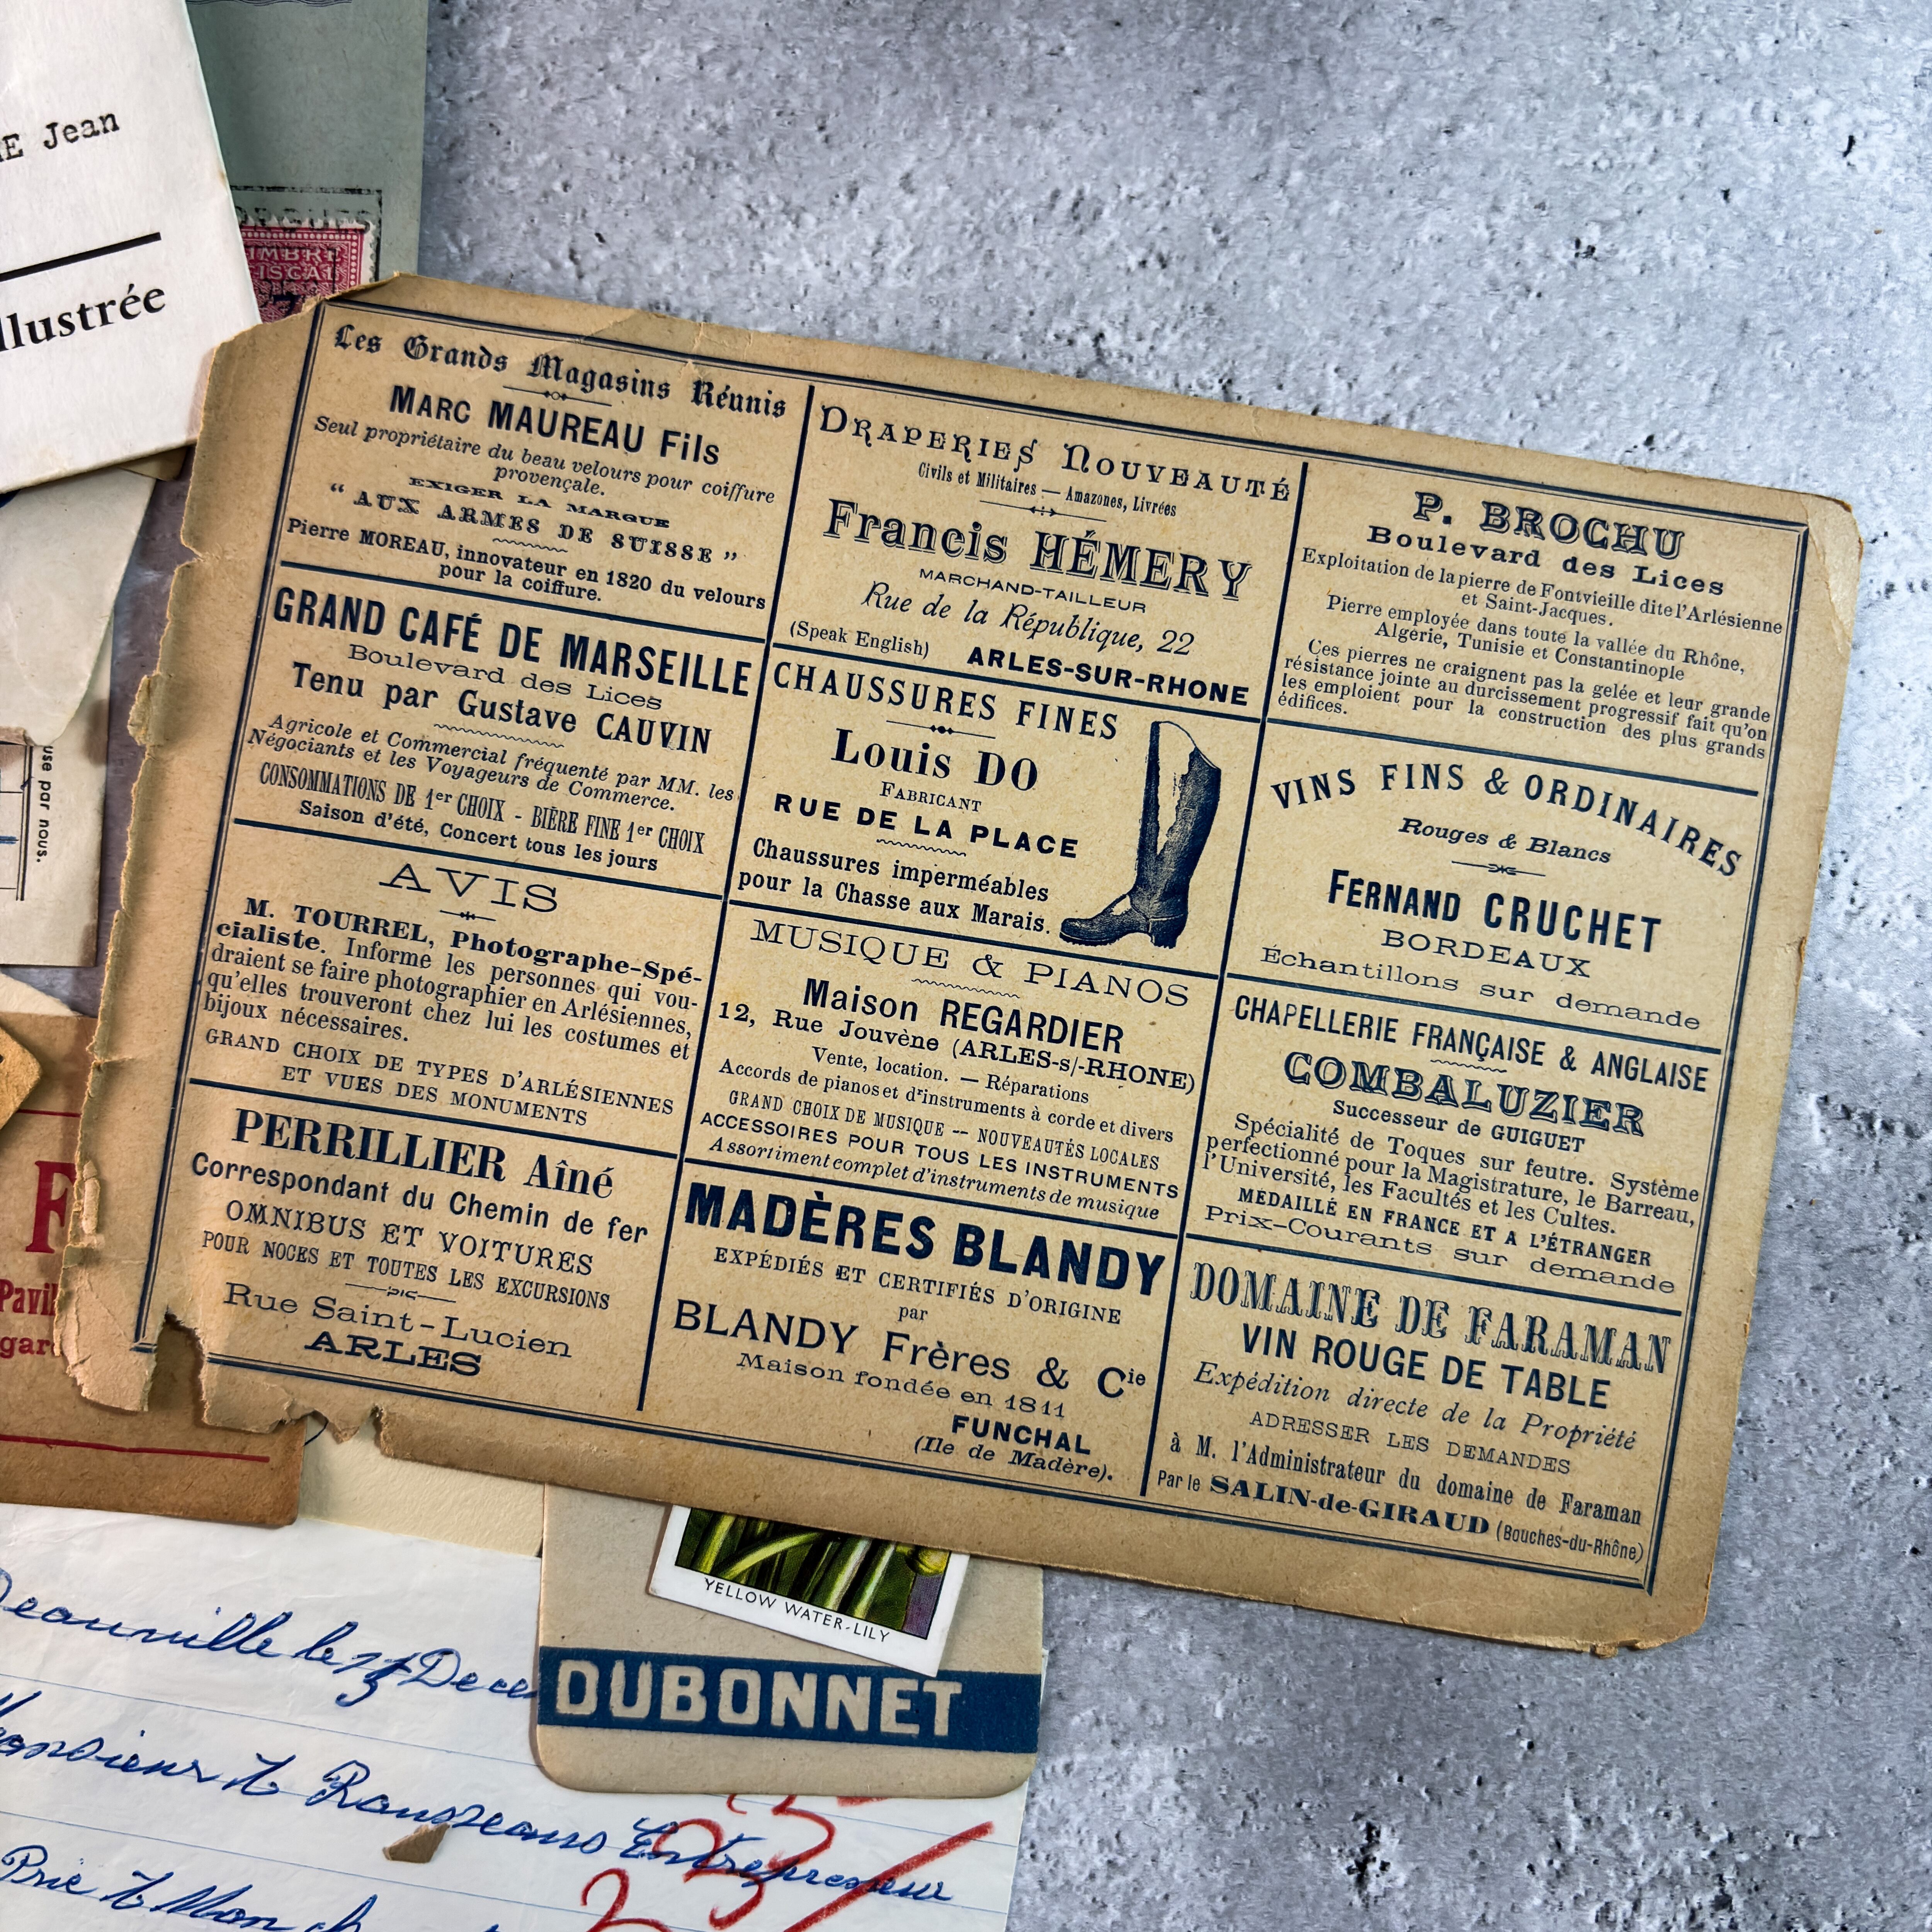 E Jean
llustrée
IMBRE
ISCAL
use par nous.
Les Grands Magasins Réunis
MARC MAUREAU Fils
Seul propriétaire du beau velours pour coiffure
provençale.
EXIGER LA MARQUE
“ AUX ARMES DE SUISSE ”
Pierre MOREAU, innovateur en 1820 du velours
pour la coiffure.
GRAND CAFÉ DE MARSEILLE
Boulevard des Lices
Tenu par Gustave CAUVIN
Agricole et Commercial fréquenté par MM. les
Négociants et les Voyageurs de Commerce.
CONSOMMATIONS DE 1er CHOIX - BIÈRE FINE 1er CHOIX
Saison d'été, Concert tous les jours
AVIS
M. TOURREL, Photographe-Spé-
cialiste. Informe les personnes qui vou-
draient se faire photographier en Arlésiennes,
qu'elles trouveront chez lui les costumes et
bijoux nécessaires.
GRAND CHOIX DE TYPES D'ARLÉSIENNES
ET VUES DES MONUMENTS
PERRILLIER Aîné
Correspondant du Chemin de fer
OMNIBUS ET VOITURES
POUR NOCES ET TOUTES LES EXCURSIONS
Rue Saint-Lucien
ARLES
DRAPERIES NOUVEAUTÉ
Civils et Militaires — Amazones, Livrées
Francis HÉMERY
MARCHAND-TAILLEUR
Rue de la République, 22
(Speak English) ARLES-SUR-RHONE
CHAUSSURES FINES
Louis DO
FABRICANT
RUE DE LA PLACE
Chaussures imperméables
pour la Chasse aux Marais.
MUSIQUE & PIANOS
Maison REGARDIER
12, Rue Jouvène (ARLES-s/-RHONE)
Vente, location. — Réparations
Accords de pianos et d'instruments à corde et divers
GRAND CHOIX DE MUSIQUE -- NOUVEAUTÉS LOCALES
ACCESSOIRES POUR TOUS LES INSTRUMENTS
Assortiment complet d'instruments de musique
MADÈRES BLANDY
EXPÉDIÉS ET CERTIFIÉS D'ORIGINE
par
BLANDY Frères & Cie
Maison fondée en 1811
FUNCHAL
(Ile de Madère).
P. BROCHU
Boulevard des Lices
Exploitation de la pierre de Fontvieille dite l'Arlésienne
et Saint-Jacques.
Pierre employée dans toute la vallée du Rhône,
Algérie, Tunisie et Constantinople
Ces pierres ne craignent pas la gelée et leur grande
résistance jointe au durcissement progressif fait qu'on
les emploient pour la construction des plus grands
édifices.
VINS FINS & ORDINAIRES
Rouges & Blancs
FERNAND CRUCHET
BORDEAUX
Échantillons sur demande
CHAPELLERIE FRANÇAISE & ANGLAISE
COMBALUZIER
Successeur de GUIGUET
Spécialité de Toques sur feutre. Système
perfectionné pour la Magistrature, le Barreau,
l'Université, les Facultés et les Cultes.
MÉDAILLÉ EN FRANCE ET A L'ÉTRANGER
Prix-Courants sur demande
DOMAINE DE FARAMAN
VIN ROUGE DE TABLE
Expédition directe de la Propriété
ADRESSER LES DEMANDES
à M. l'Administrateur du domaine de Faraman
Par le SALIN-de-GIRAUD (Bouches-du-Rhône)
F
Pavil
gar
YELLOW WATER-LILY
DUBONNET
Deauville le
Monsieur
Entrepreneur
Mon